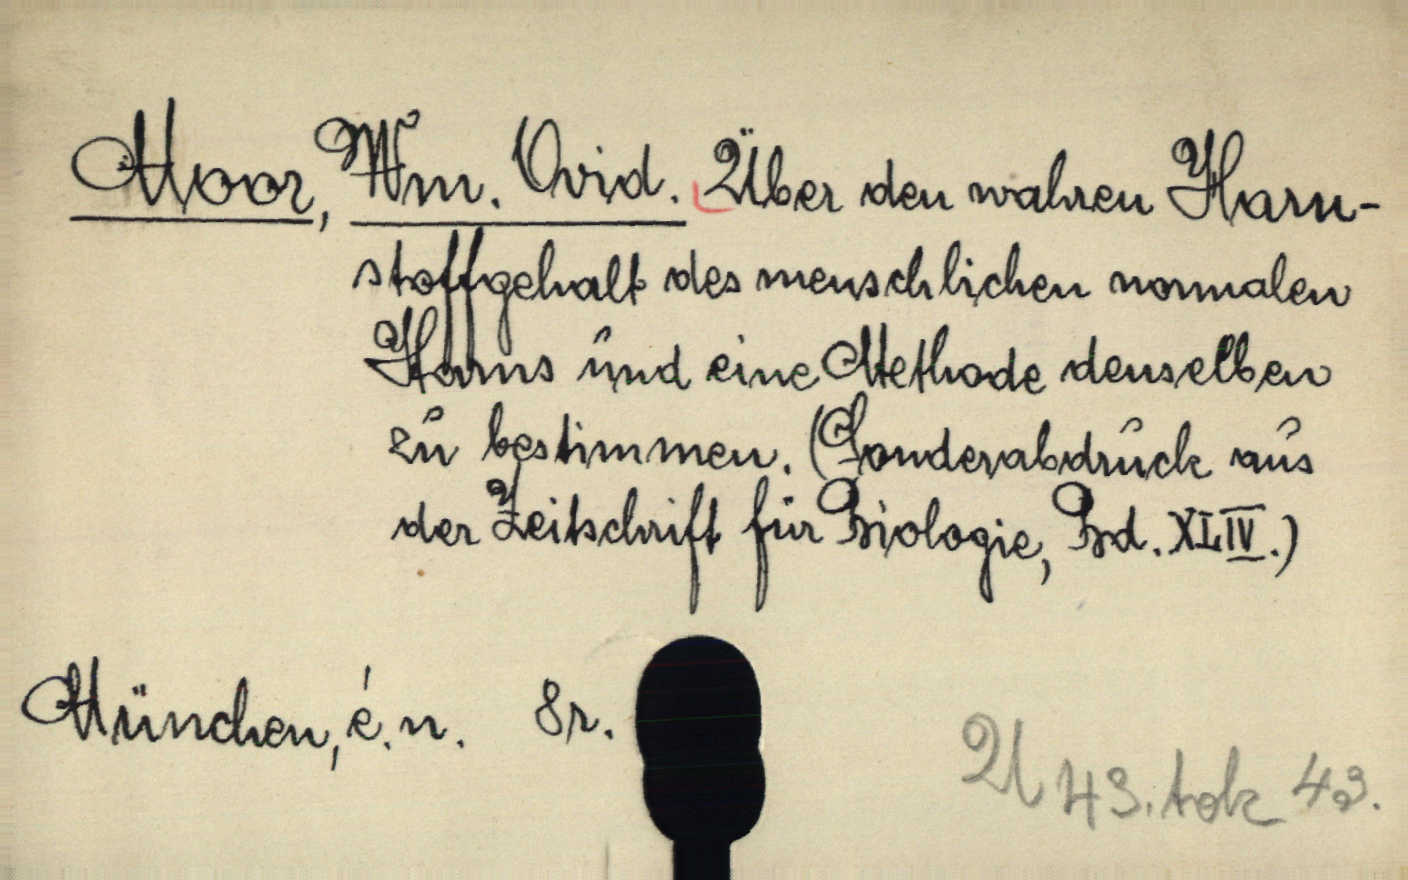 Moor, Wm. Ovid. Über den wahren Harn-
stoffgehalt des menschlichen normalen
Harns und eine Methode denselben
zu bestimmen. (Sonderabdruck aus
der Zeitschrift für Biologie, Bd. XLIV.)
München, é. n. 8r.
U 43. tok 43.